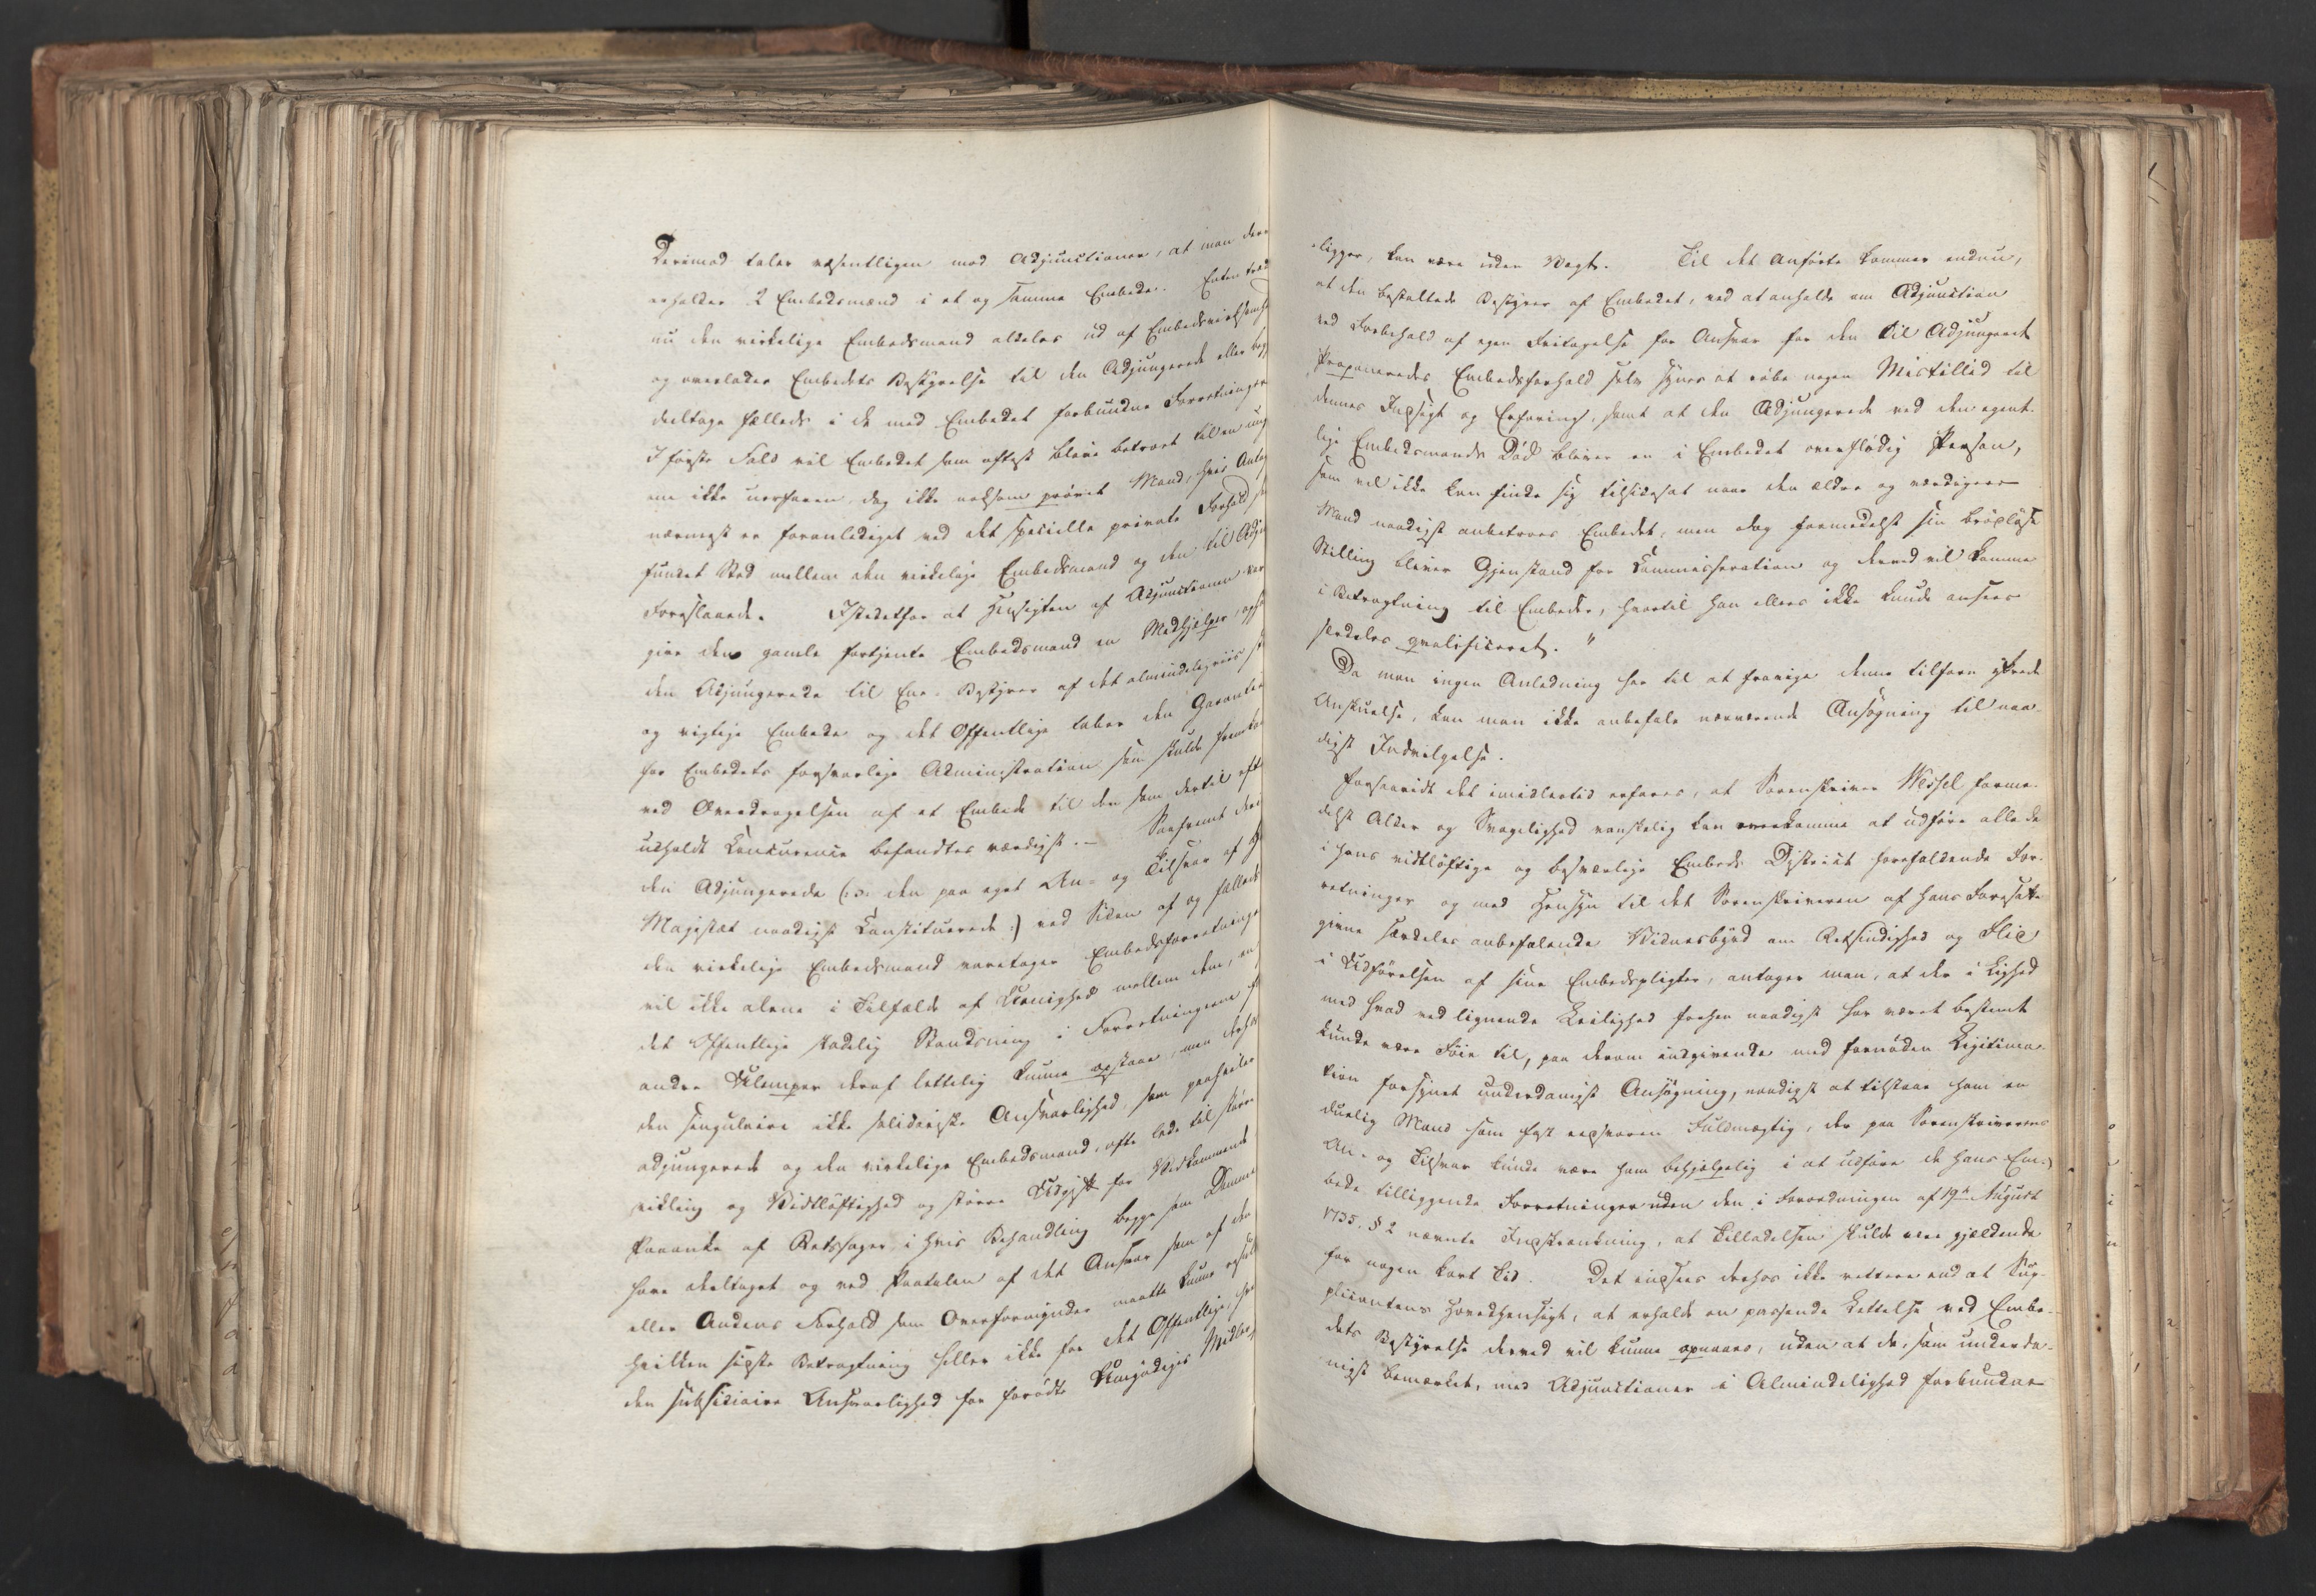 Derimod taler væsentligen mod Adjunctioner, at man der
erholder 2 Embedsmænd i et og samme Embede. Enten træd
nu den virkelige Embedsmand aldeles ud af Embedsvirksomh
og overlader Embedets Bestyrelse til den Adjungerede eller beg
deeltage fælleds i de med Embedet forbundne Forretninger
I første Fald vil Embedet som oftest blive betroet til en ung
om ikke uerfaren, dog ikke noksom prøvet Mand, hvis Antag
nærmest er foranlediget ved det specielle private Forhold
fundet Sted mellem den virkelige Embedsmand og den til Adju
Foreslaaede. Istedetfor at Hensigten af Adjunctionen var
give den gamle fortjente Embedsmand en Medhjelper, opho
den Adjungerede til Ene-Bestyrer af det almindeligviis
og vigtige Embede og det Offentlige taber den Garantie
for Embedets forsvarlige Administration som skulde fremko
ved Overdragelsen af et Embede til den som dertil eft
udholdt Concurence befandtes værdigst. – Saafremt der
den Adjungerede (:ɔ: den paa eget An- og Tilsvar af
Majestæt naadigst Constituerede:) ved Siden af og fælleds
den virkelige Embedsmand varetager Embedsforretninge
vil ikke alene i Tilfælde af Uenighed mellem dem, en
det Offentlige skadelig Standsning i Forretningerne
andre Ulemper deraf lettelig kunne opstaae, men desfor
den singulaire ikke solidariske Ansvarlighed, som paahviler
adjungerede og den virkelige Embedsmand, ofte lede til større
vikling og Vidtløftighed og større Udgift for Vedkommende
Paaanke af Retssager i hvis Behandling begge som Domme
have deeltaget og ved Paatalen af det Ansvar som af den
eller Andens Forhold som Overformynder maatte kunne opst
hvilken sidste Betragtning heller ikke for det Offentlige,
den subsidiaire Ansvarlighed for forødte Umyndiges Midler
ligger, kan være uden Vægt. Til det Anførte kommer endnu,
at den bestaltede Bestyrer af Embedet, ved at anholde om Adjunction
ved Forbehold af egen Fritagelse for Ansvar for den til Adjungeret
Proponeredes Embedsforhold selv synes at røbe nogen Mistillid til
dennes Indsigt og Erfaring, samt at den Adjungerede ved den egent-
lige Embedsmands Død bliver en i Embedet overflødig Person,
som vel ikke kan finde sig tilsidesat naar den ældre og værdigere
Mand naadigst anbetroes Embedet, men dog formedelst sin brødløse
Stilling bliver Gjenstand for Commiseration og derved vil komme
i Betragtning til Embeder, hvortil han ellers ikke kunde ansees
særdeles qvalificeret."
Da man ingen Anledning har til at fravige denne tilforn yttrede
Anskuelse, kan man ikke anbefale nærværende Ansøgning til naa-
digst Indvilgelse.
Forsaavidt det imidlertid erfares, at Sorenskriver Wessel forme-
delst Alder og Svagelighed vanskelig kan overkomme at udføre alle de
i hans vidtløftige og besværlige Embeds District forefaldende For-
retninger og med Hensyn til det Sorenskriveren af hans Foresatte
givne særdeles anbefalende Vidnesbyrd om Retsindighed og Flid
i Udførelsen af sine Embedspligter, antager man, at der i Lighed
med hvad ved lignende Leilighed forhen naadigst har været bestemt
kunde være Føie til, paa derom indgivende med fornøden Legitima-
tion forsynet underdanigst Ansøgning, naadigst at tilstaae ham en
duelig Mand som fast eedsvoren Fuldmægtig, der paa Sorenskriverens
An- og Tilsvar kunde være ham behjelpelig i at udføre de hans Em-
bede tilliggende Forretninger uden den i Forordningen af 19de August
1735. § 2 nævnte Indskrænkning, at Tilladelsen skulde være gjældende
for nogen kort Tid. Det indsees derhos ikke rettere end at Sup-
plicantens Hovedhensigt, at erholde en passende Lettelse ved Embe-
dets Bestyrelse derved vil kunne opnaaes, uden at de, som underda-
nigst bemærket, med Adjunctioner i Almindelighed forbundne